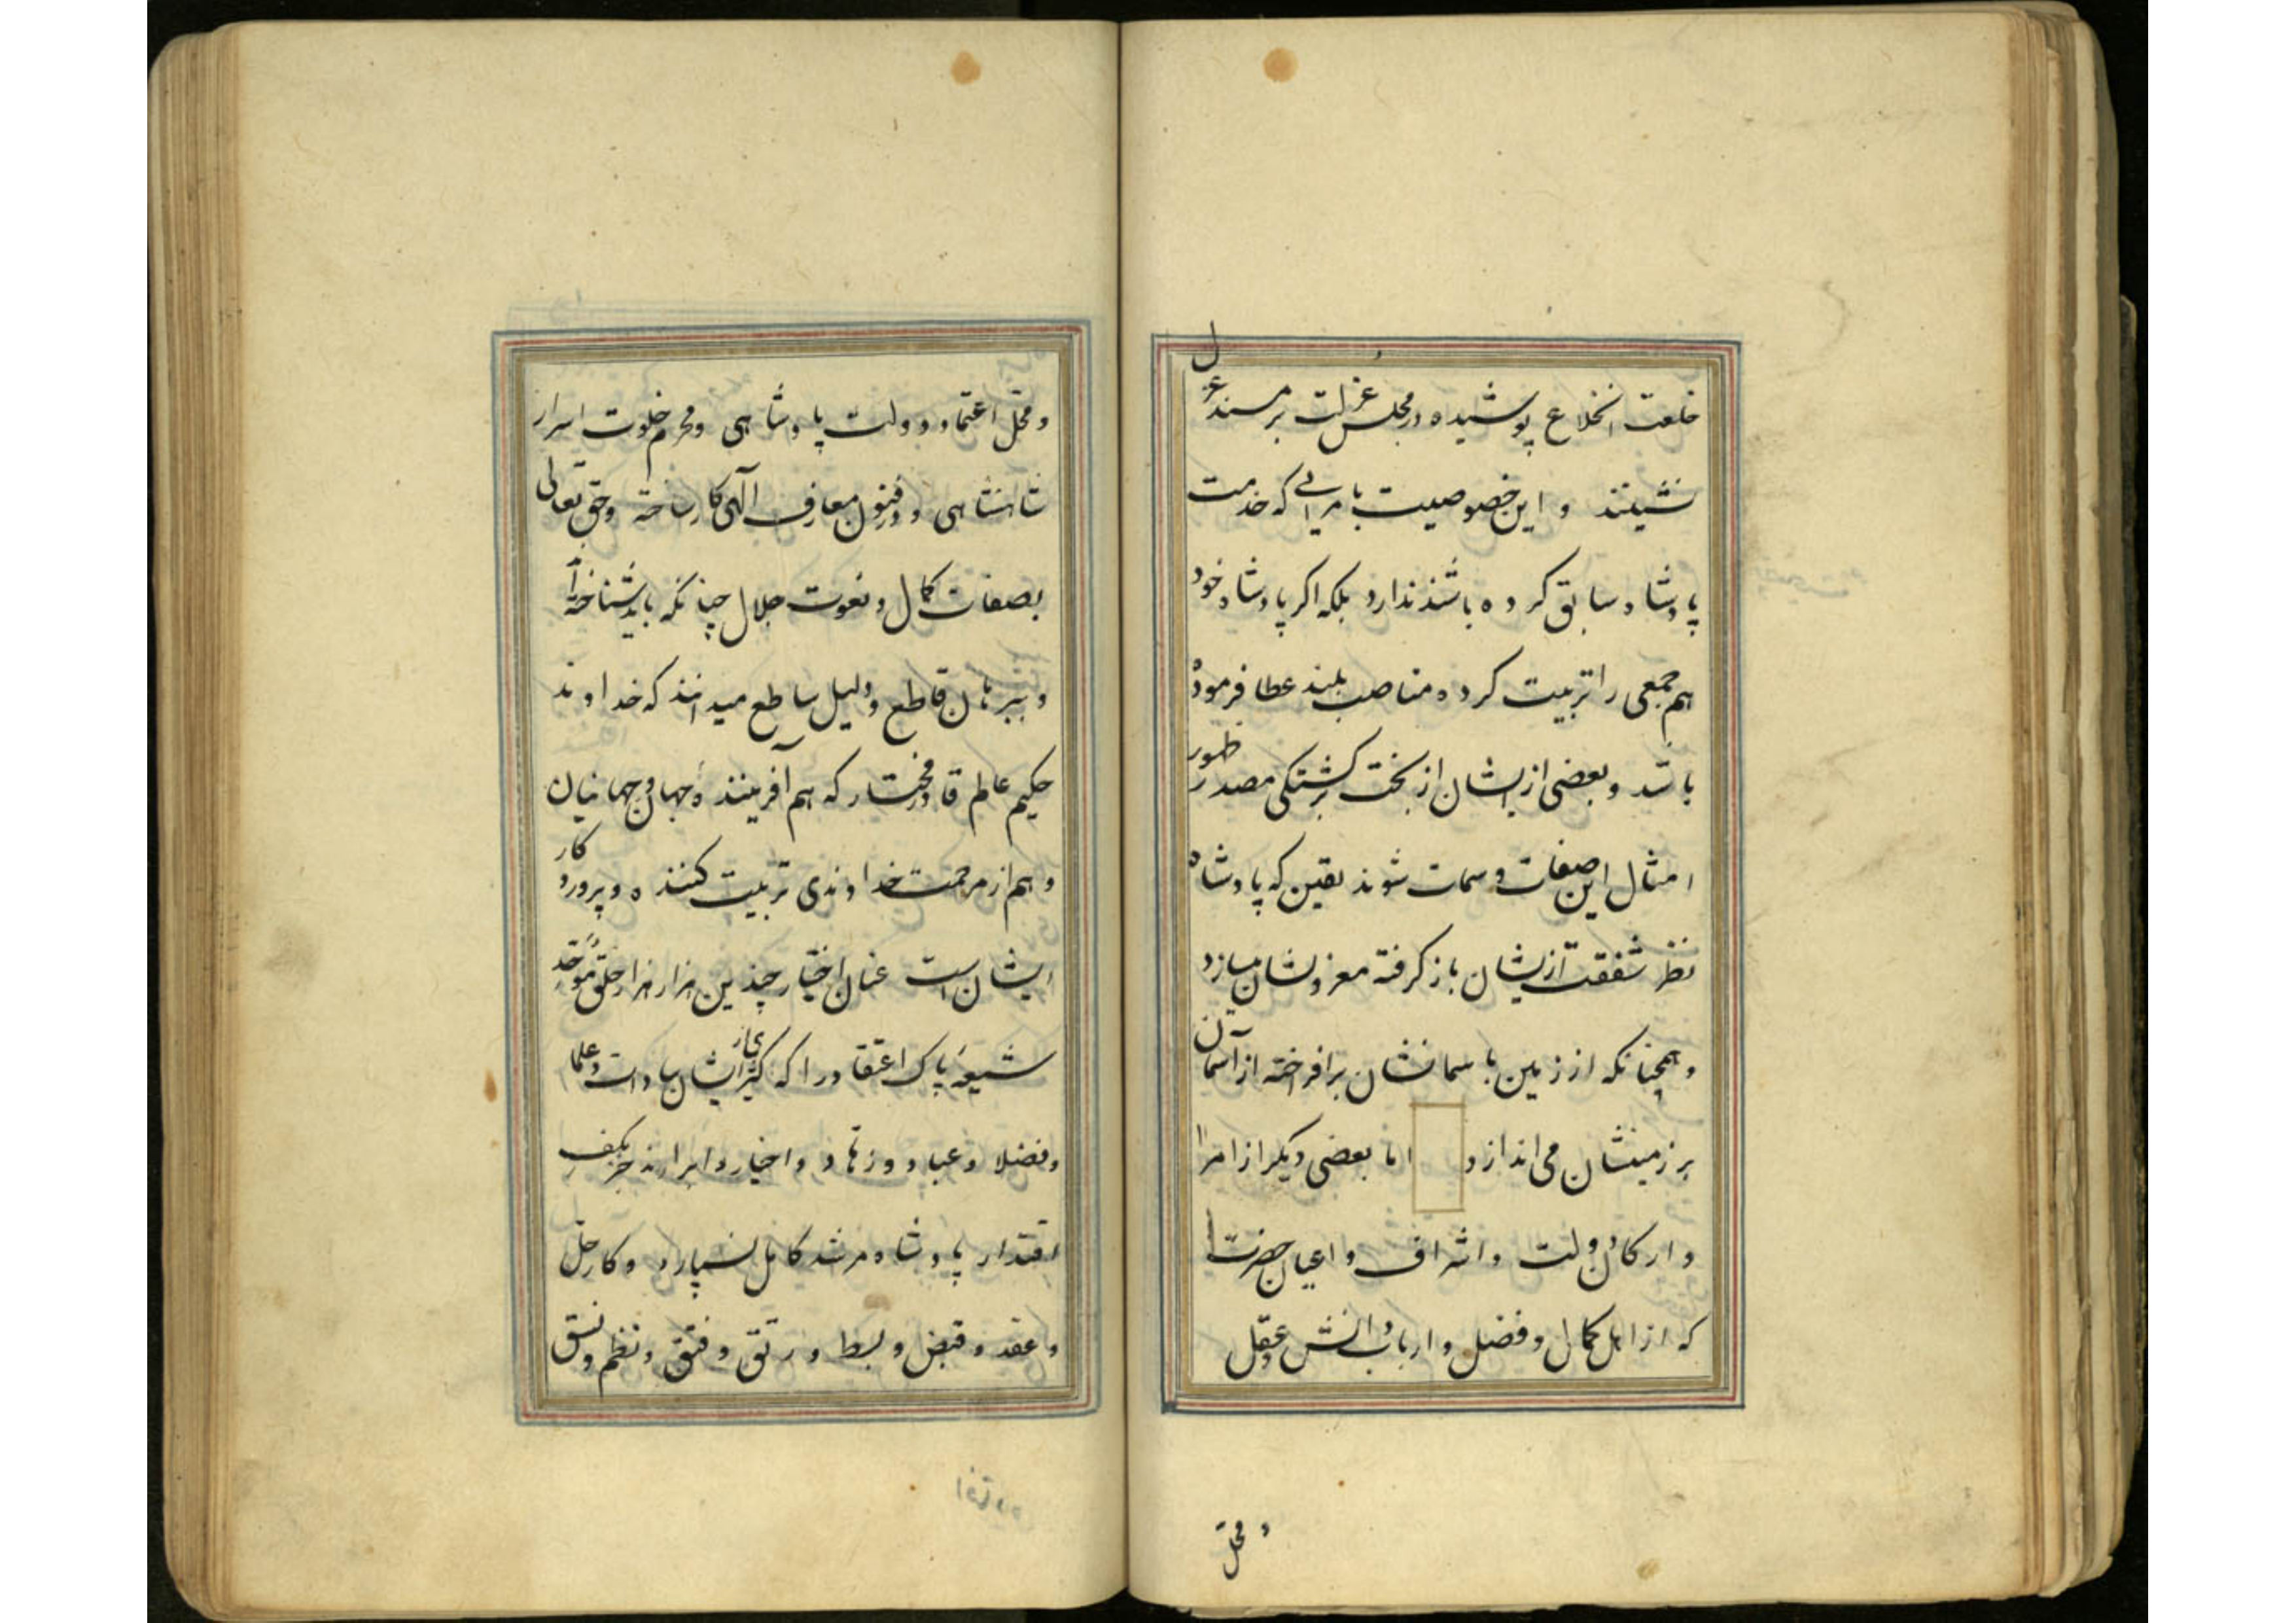 خلعت انخلاع پوشیده در مجلس عزلت بر مسند عزل
نشینند و این خصوصیت بامرایی که خدمت
پادشاه سابق کرده باشند ندارد بلکه اگر پادشاه خود
هم جمعی را تربیت کرده مناصب بلند عطا فرموده
باشد و بعضی از ایشان از بخت برگشتگی مصدر ظهور
امثال این صفات و سمات شوند یقین که پادشاه
نظر شفقت از ایشان باز گرفته معزولشان میسازد
و همچنانکه از زمین باسمانشان برافراخته از آسمان
بر زمینشان می اندازد اما بعضی دیگر از امرا
و ارکان دولت و اشراف و اعیان حضرت
که از اهل کمال و فضل و ارباب دانش و عقل
و محل
و محل اعتماد دولت پادشاهی و محرم خلوت اسرار
شاهنشاهی و در فنون معارف الهی کار ساخته و حق تعالی
بصفات کمال و نعوت جلال چنانکه باید شناخته اند
و ببرهان قاطع و دلیل ساطع میدانند که خداوند
حکیم عالم قادر مختار که هم آفریننده جهان و جهانیان
و هم از مرحمت خداوندی تربیت کننده و پروردکار
ایشان است عنان اختیار چندین هزار هزار خلق موحد
شیعه پاک اعتقاد را که اکثری از ایشان سادات و علما
و فضلا و عباد و زهاد و اخیار و ابرارند جز بکف
اقتدار پادشاه مرشد کامل نسپارد و کار حل
و عقد و قبض و بسط و رتق و فتق و نظم و نسق